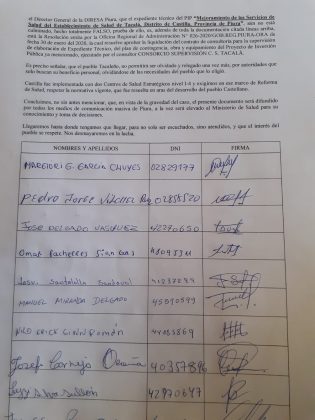 Director General de la DIRESA Piura, que el expediente técnico del PIP "Mejoramiento de los Servicios de
Salud del Establecimiento de Salud de Tacalá, Distrito de Castilla, Provincia de Piura",
culminado, hecho totalmente FALSO, prueba de ello es, además de toda la documentación citada líneas arriba,
que la Resolución emita por la Oficina Regional de Administración Nº
fecha 30 de enero del 2020, la cual resuelve aprobar la liquidación del contrato de consultoría para la supervisión
de elaboración de Expediente Técnico, del plan de contingencia, obra y equipamiento del Proyecto de Inversión
Pública ya mencionado, ejecutado por el consultor CONSORCIO SUPERVISIÓN C. S. TACALÁ.
Es preciso señalar, que el pueblo Tacaleño, no permitirá ser olvidado y relegado una vez más, por autoridades que
solo buscan su beneficio personal, olvidándose de las necesidades por los cuales fueron elegidos.
Castilla fue implementado con dos Centros de Salud Estratégicos nivel 1-4 y exigimos en ese marco de Reforma
de Salud, respetar la normativa vigente, que fue resuelta en aras del desarrollo del pueblo Castellano.
Concluimos, no sin antes mencionar que, en vista de la gravedad del caso, el presente documento será difundido
por todos los medios de comunicación masiva de Piura, a la vez será elevado al Ministerio de Salud para su
conocimiento y toma de decisiones.
Llegaremos hasta donde tengamos que llegar, para no solo ser escuchados, sino atendidos, y que el interés del
pueblo se respete. Nos destaquremos en la lucha.
NOMBRES Y APELLIDOS DNI FIRMA
MARGIORI G. GARCIA CHUYES 02829177
PEDRO JORGE VILCHEZ 02855520
JOSE DELGADO VASQUEZ 42270650
Omar Pacherres
Sandoval
MANUEL MIRANDA DELGADO
ERICK GIRÓN Román 44183869
Josef Cornejo Ocaña 40357896
42970647